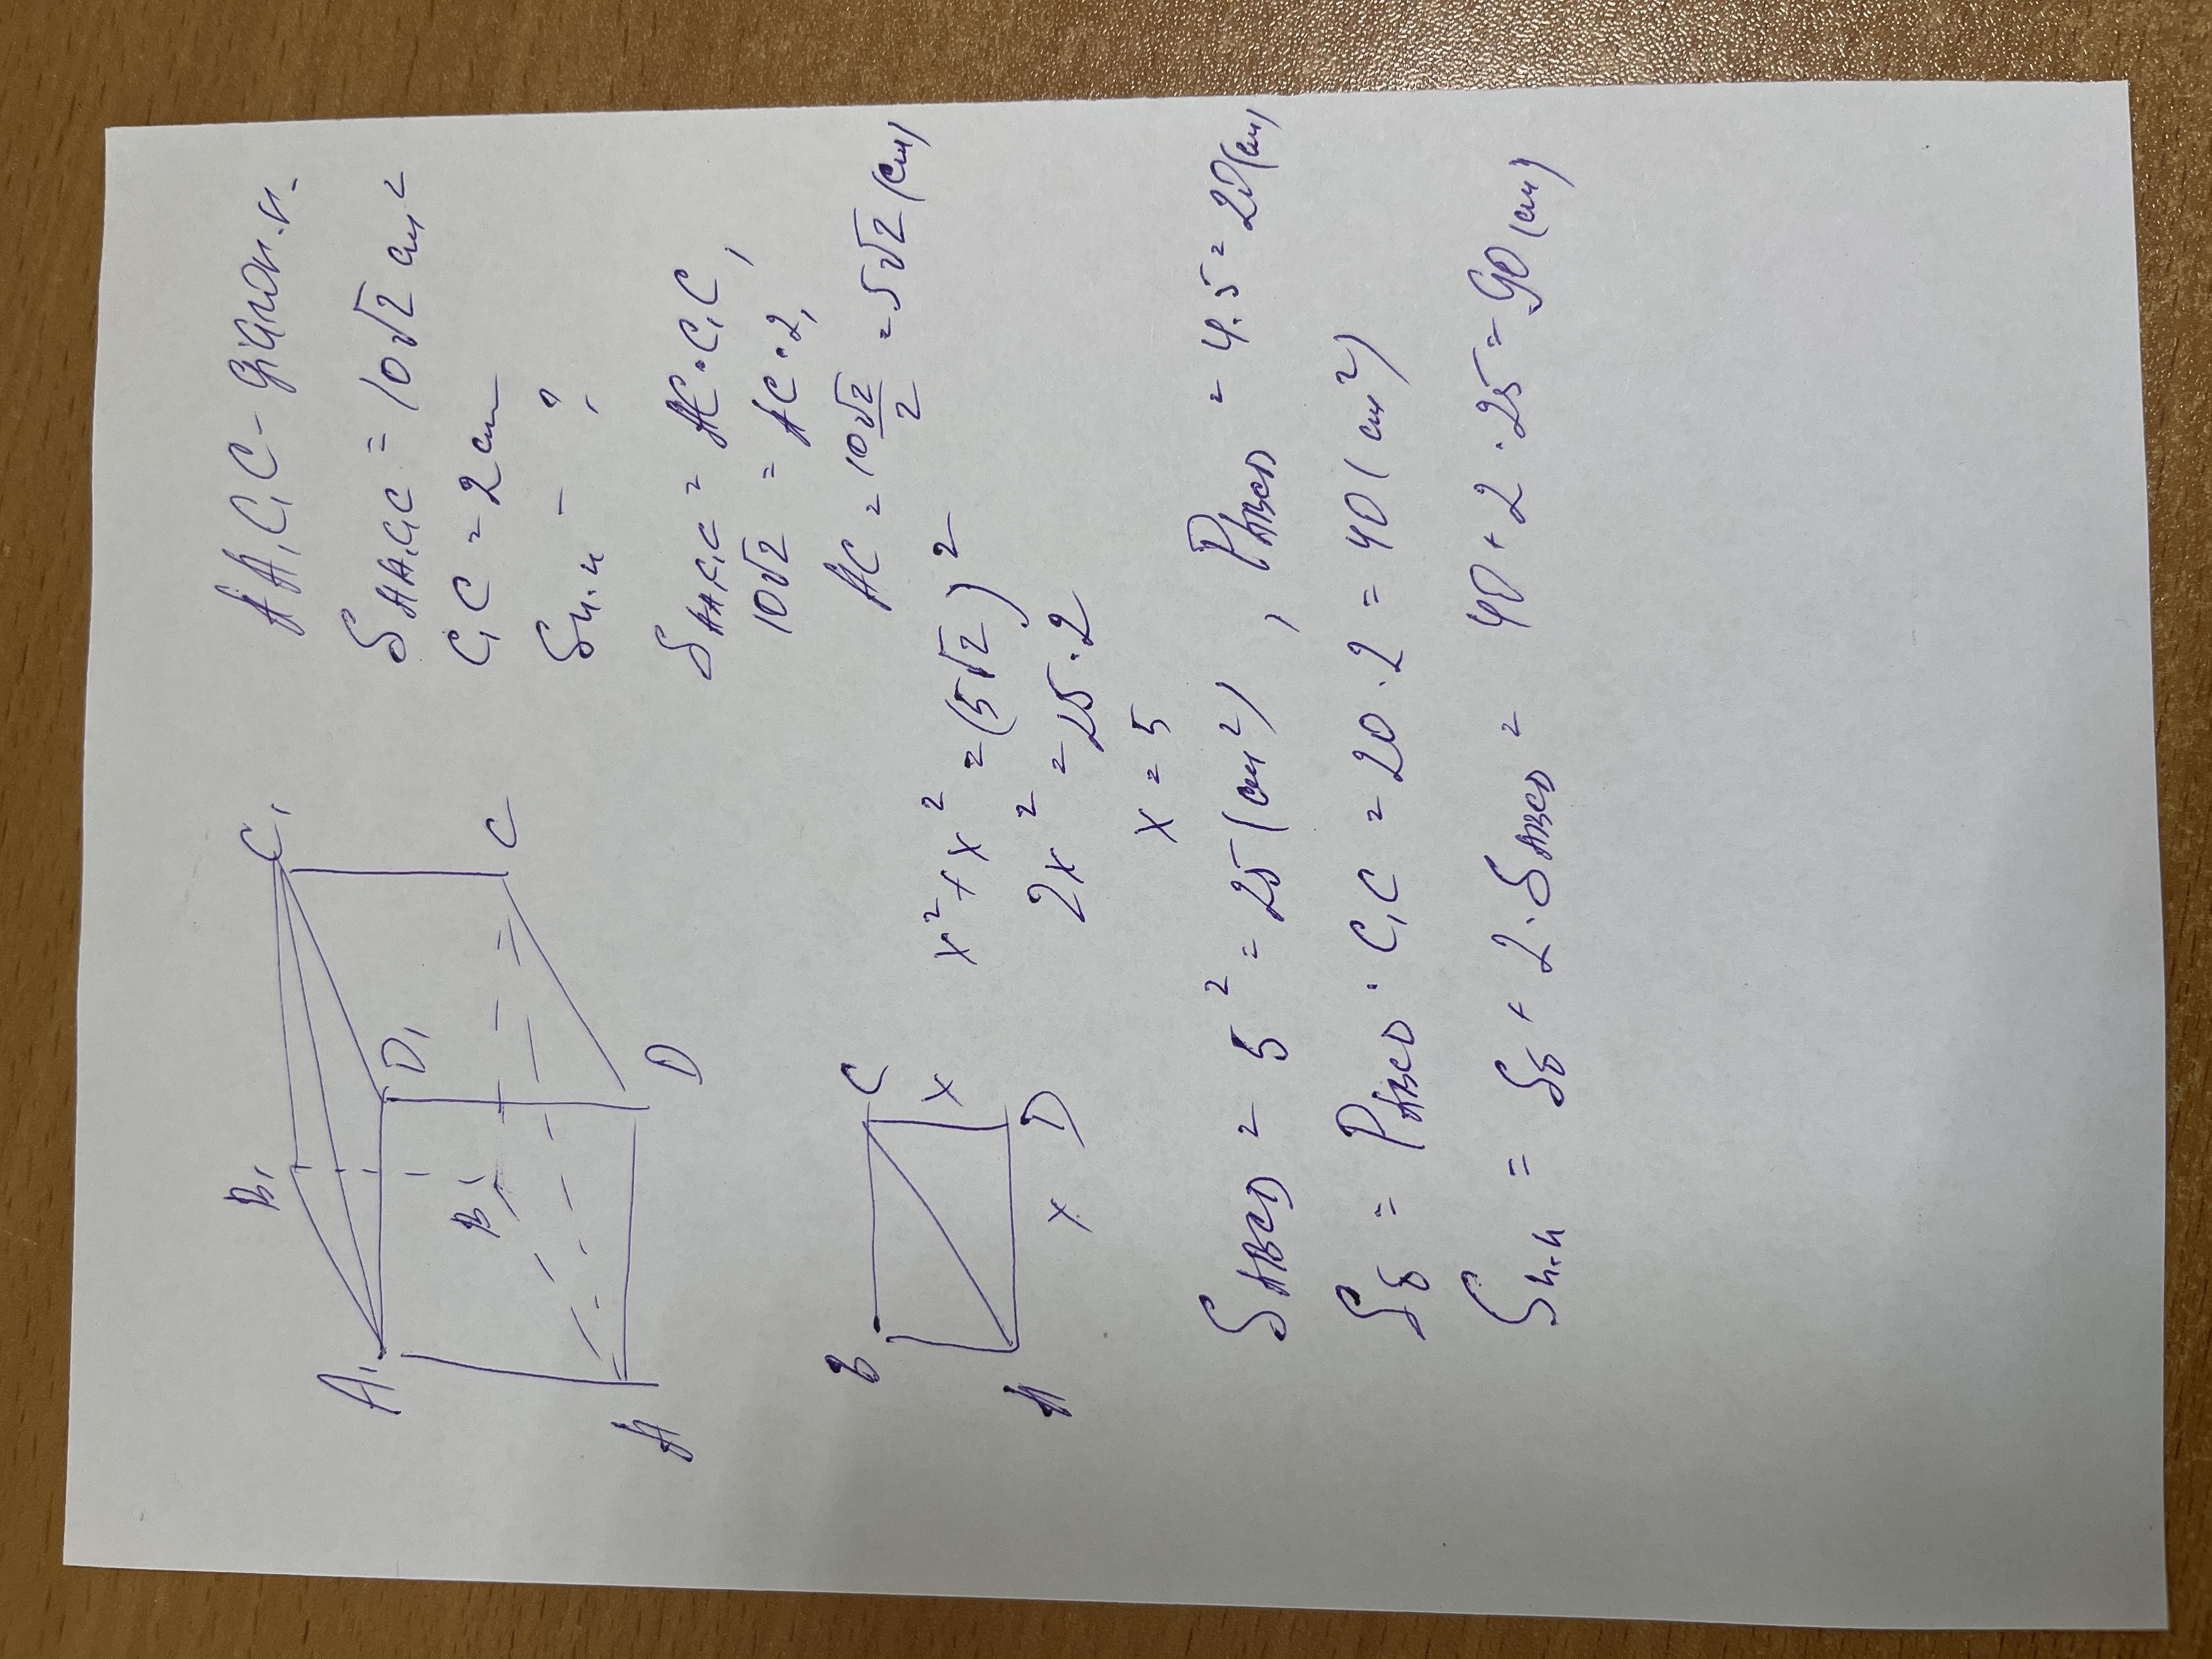 AA₁C₁C - діагон. п.
S AA₁C₁C = 10√2 см²
C₁C = 2 см
Sп.п - ?
S AA₁C₁C = AC · C₁C,
10√2 = AC · 2,
AC = 10√2/2 = 5√2 (см)
B₁ C₁
A₁ D₁
B C
A D
B C
x
A x D
x² + x² = (5√2)²
2x² = 25 · 2
x = 5
S ABCD = 5² = 25 (см²), P ABCD = 4·5 = 20 (см)
Sб = P ABCD · C₁C = 20 · 2 = 40 (см²)
Sп.п = Sб + 2 · S ABCD = 40 + 2 · 25 = 90 (см)